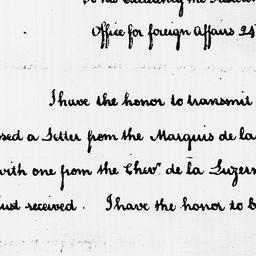 To his Excellency the Presiden
Office for foreign Affairs 24
I have the honor to transmit
sed a Letter from the Marquis de la
with one from the Chevr. de la Luzern
just received. I have the honor to b